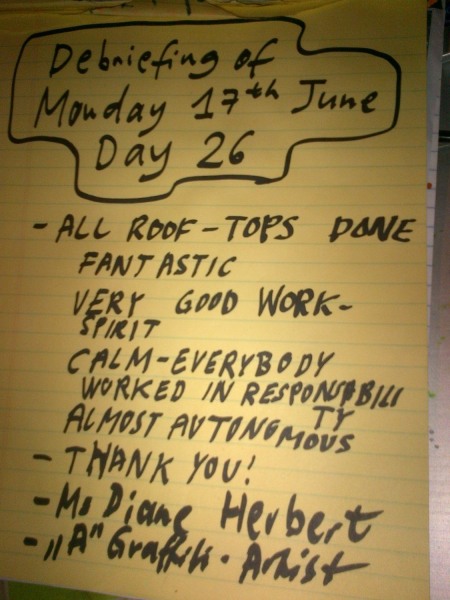 Debriefing of
Monday 17th June
Day 26
- ALL ROOF-TOPS DONE
FANTASTIC
VERY GOOD WORK-
SPIRIT
CALM-EVERYBODY
WORKED IN RESPONSABILI
TY
ALMOST AUTONOMOUS
- THANK YOU!
- Ms Diane Herbert
- „A" Graffiti-Artist